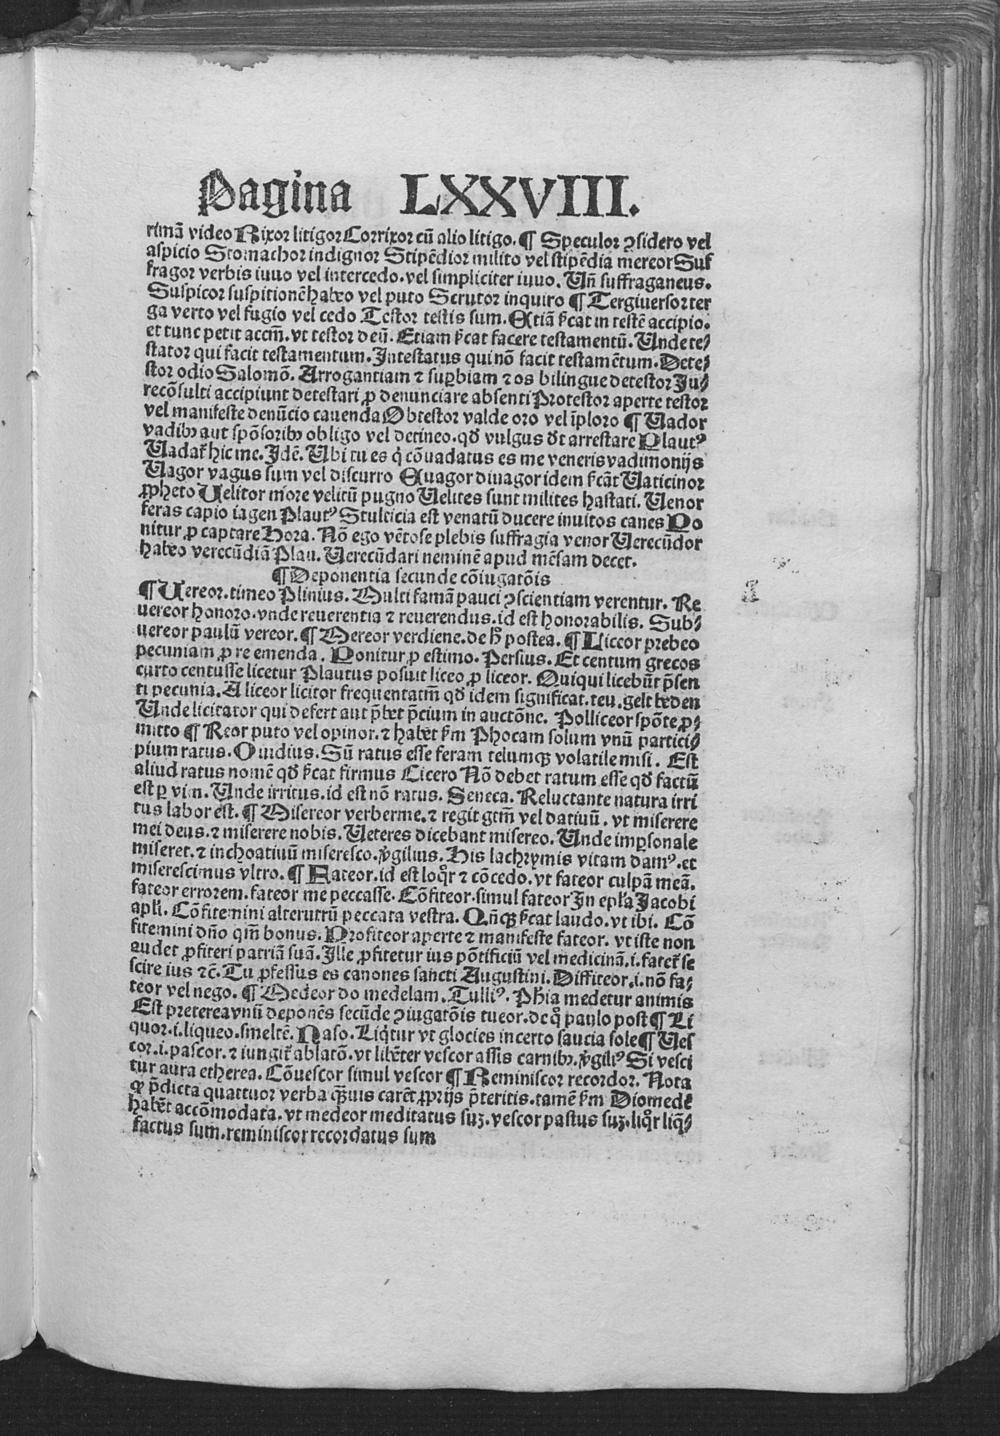 Pagina LXXVIII.
rimā video Rixor litigor Corrixor cū alio litigo. ¶ Speculor ꝯsidero vel
aspicio Stomachor indignor Stipēdior milito vel stipēdia mereor Suf
fragor verbis iuuo vel intercedo. vel simpliciter iuuo. Uñ suffraganeus.
Suspicor suspitionē habeo vel puto Scrutor inquiro ¶ Tergiuersor ter
ga verto vel fugio vel cedo Testor testis sum. Etiā ſcat in testē accipio.
et tunc petit accm̄. vt testor deū. Etiam ſcat facere testamentū. Unde te⸗
stator qui facit testamentum. Intestatus qui nō facit testamētum. Dete⸗
stor odio Salomō. Arrogantiam ⁊ suꝑbiam ⁊ os bilingue detestor Ju⸗
recōsulti accipiunt detestari ꝓ denunciare absenti Protestor aperte testor
vel manifeste denūcio cauenda Obtestor valde oro vel īploro ¶ Uador
vadibꝫ aut spōsoribꝫ obligo vel detineo. qd̄ vulgus dr̄t arrestare Plautꝰ
Uadat̄ hic me. Idē. Ubi tu es q̇ cōuadatus es me veneris vadimonijs
Uagor vagus sum vel discurro Euagor diuagor idem ſcāt Uaticinor
ꝓpheto Uelitor more velitū pugno Uelites sunt milites hastati. Uenor
feras capio iagen Plautꝰ Stulticia est venatū ducere inuitos canes Po
nitur ꝓ captare Hora. Nō ego vētose plebis suffragia venor Uerecūdor
habeo verecūdiā Plau. Uerecūdari neminē apud mēsam decet.
¶ Deponentia secunde cōiugatōis
¶ Uereor. timeo Plinius. Multi famā pauci ꝯscientiam verentur. Re
uereor honoro. vnde reuerentia ⁊ reuerendus. id est honorabilis. Sub⸗
uereor paulū vereor. ¶ Mereor verdiene. de h̄ postea. ¶ Liceor prebeo
pecuniam ꝓ re emenda. Ponitur ꝓ estimo. Persius. Et centum grecos
curto centusse licetur Plautus posuit liceo ꝓ liceor. Quiqui licebūt p̄sen
ti pecunia. A liceor licitor frequentatm̄ qd̄ idem significat. teu. gelt beden
Unde licitator qui defert aut p̄bet p̄cium in auctōne. Polliceor spōte ꝓ⸗
mitto ¶ Reor puto vel opinor. ⁊ habet ſm Phocam solum vnū partici⸗
pium ratus. Ouidius. Sū ratus esse feram telumqꝫ volatile misi. Est
aliud ratus nomē qd̄ ſcat firmus Cicero Nō debet ratum esse qd̄ factū
est ꝑ vim. Unde irritus. id est nō ratus. Seneca. Reluctante natura irri
tus labor est. ¶ Misereor verberme. ⁊ regit gtm̄ vel datiuū. vt miserere
mei deus. ⁊ miserere nobis. Ueteres dicebant misereo. Unde imꝑsonale
miseret. ⁊ inchoatiuū miseresco. v̄gilius. His lachrymis vitam damꝰ. et
miserescimus vltro. ¶ Fateor. id est loq̄r ⁊ cōcedo. vt fateor culpā meā.
fateor errorem. fateor me peccasse. Cōfiteor. simul fateor Jn epl̄a Jacobi
apl̄i. Cōfitemini alterutrū peccata vestra. Qn̄qꝫ ſcat laudo. vt ibi. Cō
fitemini dn̄o qm̄ bonus. Profiteor aperte ⁊ manifeste fateor. vt iste non
audet ꝓfiteri patriā suā. Ille ꝓfitetur ius pōtificiū vel medicinā. i. fatet̄ se
scire ius ⁊c̄. Tu ꝓfessus es canones sancti Augustini. Diffiteor. i. nō fa⸗
teor vel nego. ¶ Medeor do medelam. Tulliꝰ. Ph̄ia medetur animis
Est preterea vnū deponēs secūde ꝯiugatōis tueor. de q̊ paulo post ¶ Li
quor. i. liqueo. smeltē. Naso. Liq̄tur vt glacies incerto saucia sole ¶ Ues
cor. i. pascor. ⁊ iungit̄ ablatō. vt libēter vescor assis carnibꝫ. v̄giliꝰ Si vesci
tur aura etherea. Cōuescor simul vescor ¶ Reminiscor recordor. Nota
ꝙ p̄dicta quattuor verba q̄uis carēt ꝓprijs p̄teritis. tamē ſm Diomedē
habēt accōmodata. vt medeor meditatus suꝫ. vescor pastus suꝫ. liq̄r liq̄⸗
factus sum. reminiscor recordatus sum